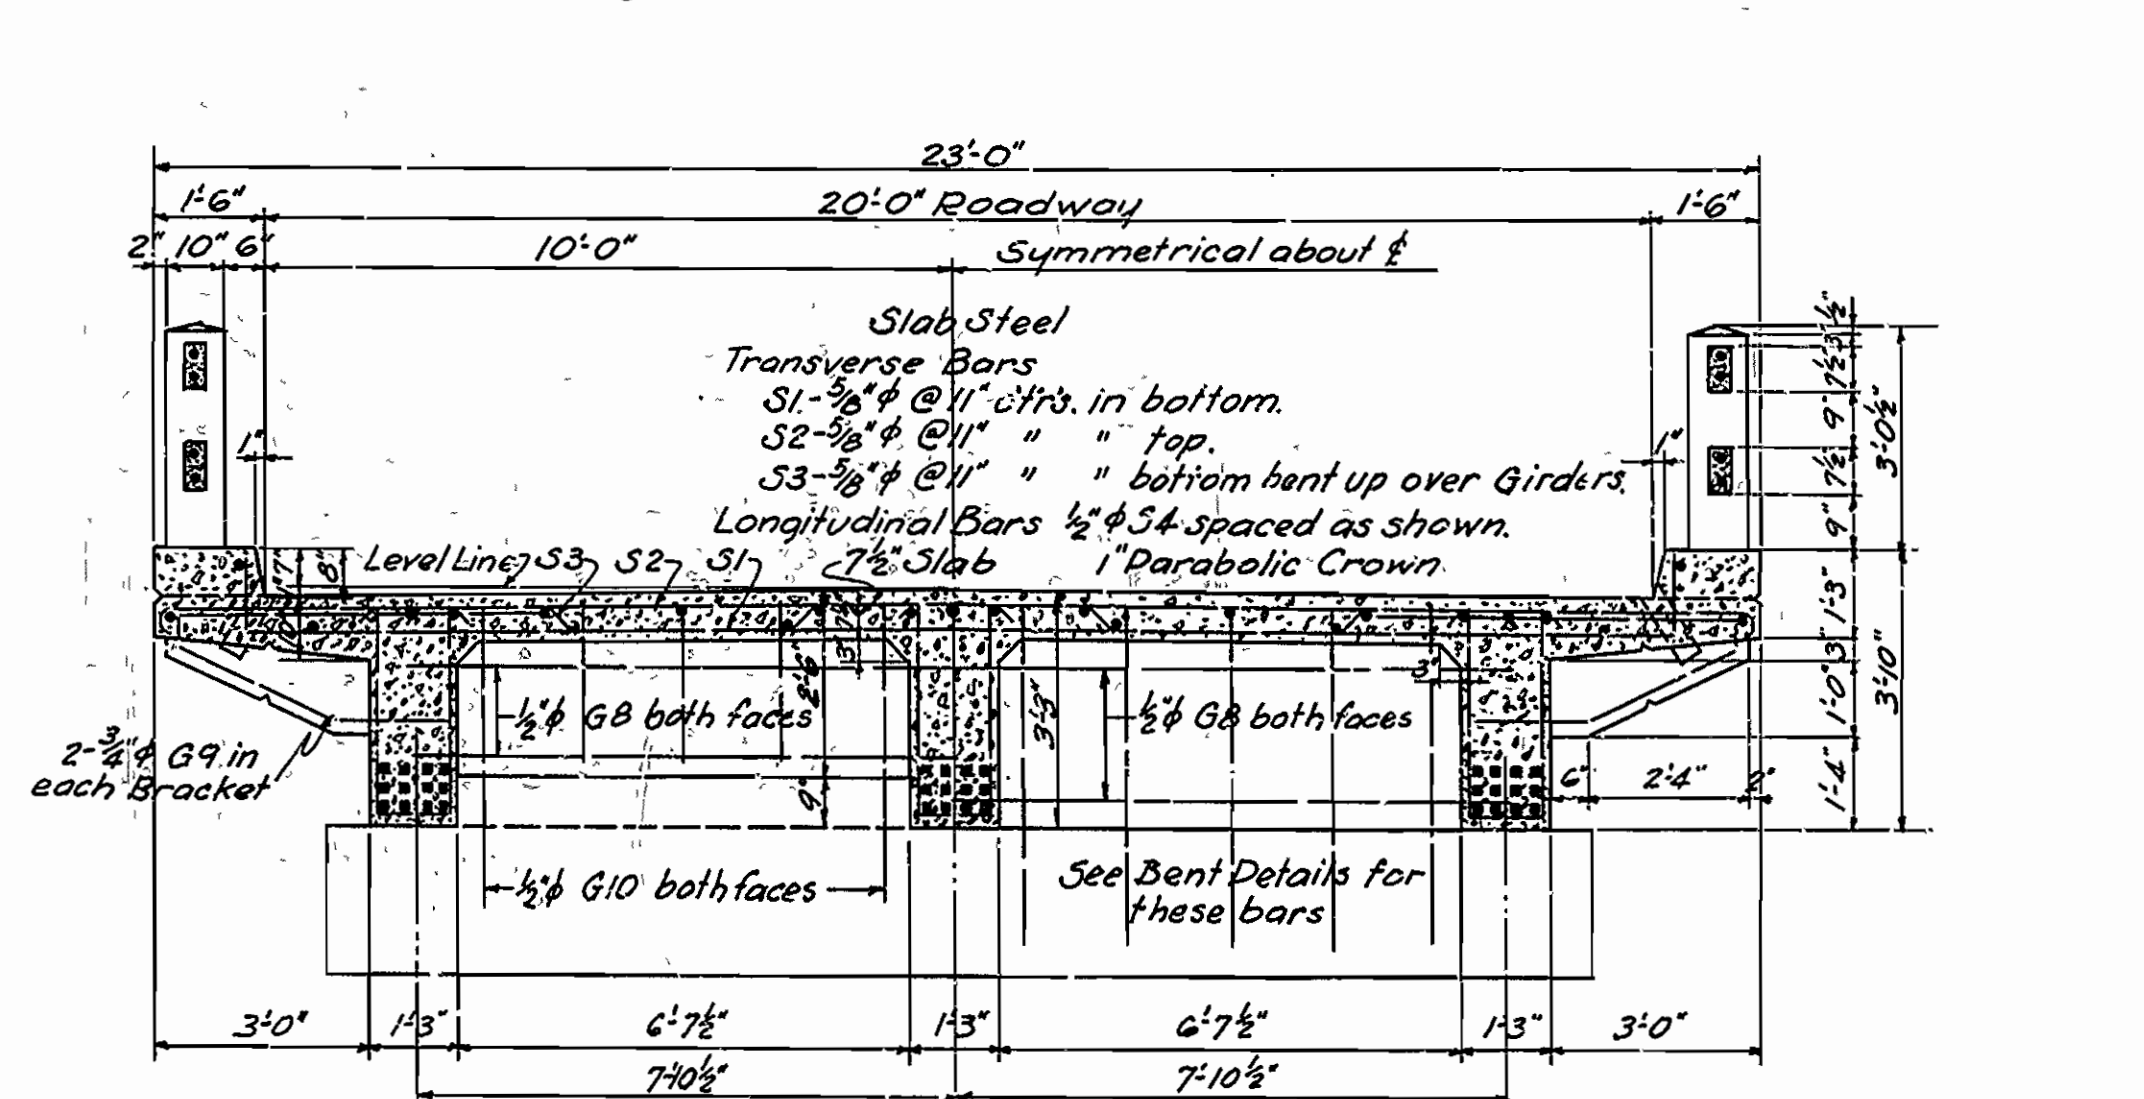 23'-0"
1'-6" 20'-0" Roadway 1'-6"
2" 10" 6" 10'-0" Symmetrical about ℄
Slab Steel
Transverse Bars
S1-5/8"ϕ @ 11" c'trs. in bottom.
S2-5/8"ϕ @ 11" " " top.
S3-5/8"ϕ @ 11" " " bottom bent up over Girders.
Longitudinal Bars 1/2"ϕ S4 spaced as shown.
Level Line S3 S2 S1 7 1/2" Slab 1" Parabolic Crown
1" 1"
8"
1/2"
3"
7 1/2"
9"
7 1/2"
9"
3'-0 1/2"
1'-3"
3"
1'-0"
1'-4"
3'-10"
3"
2'-6"
9"
3'-3"
3"
1/2"ϕ G8 both faces 1/2"ϕ G8 both faces
2-3/4"ϕ G9 in
each Bracket
6" 2'-4" 2"
1/2"ϕ G10 both faces
See Bent Details for
these bars
3'-0" 1'-3" 6'-7 1/2" 1'-3" 6'-7 1/2" 1'-3" 3'-0"
7'-10 1/2" 7'-10 1/2"